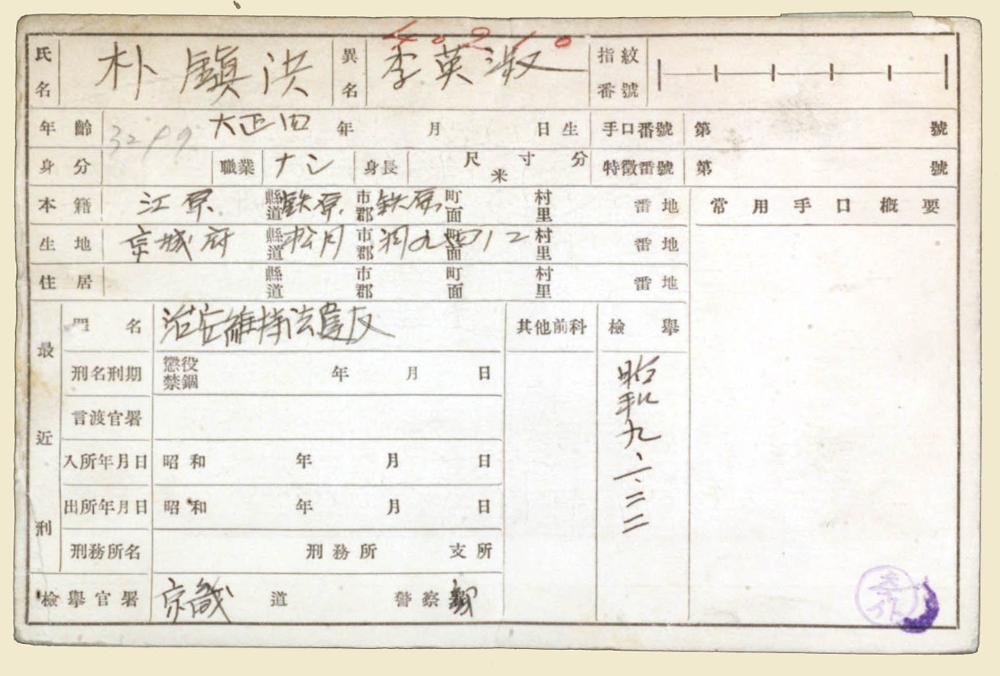 40210
氏名 朴鎭洪 異名 李英淑 指紋番號
年齡 3299 大正四 年 月 日生 手口番號 第 號
身分 職業 ナシ 身長 尺寸分 米 特徴番號 第 號
本籍 江原 縣道 鉄原 市郡 鉄原 町面 村里 番地 常用手口槪要
生地 京城府 縣道 松月 市郡 洞九四ノ二 町面 村里 番地
住居 縣道 市郡 町面 村里 番地
最近刑
罪名 治安維持法違反 其他前科 檢擧
刑名刑期 懲役 禁錮 年 月 日 昭和九、六、二二
言渡官署
入所年月日 昭和 年 月 日
出所年月日 昭和 年 月 日
刑務所名 刑務所 支所
檢擧官署 京畿 道 警察部